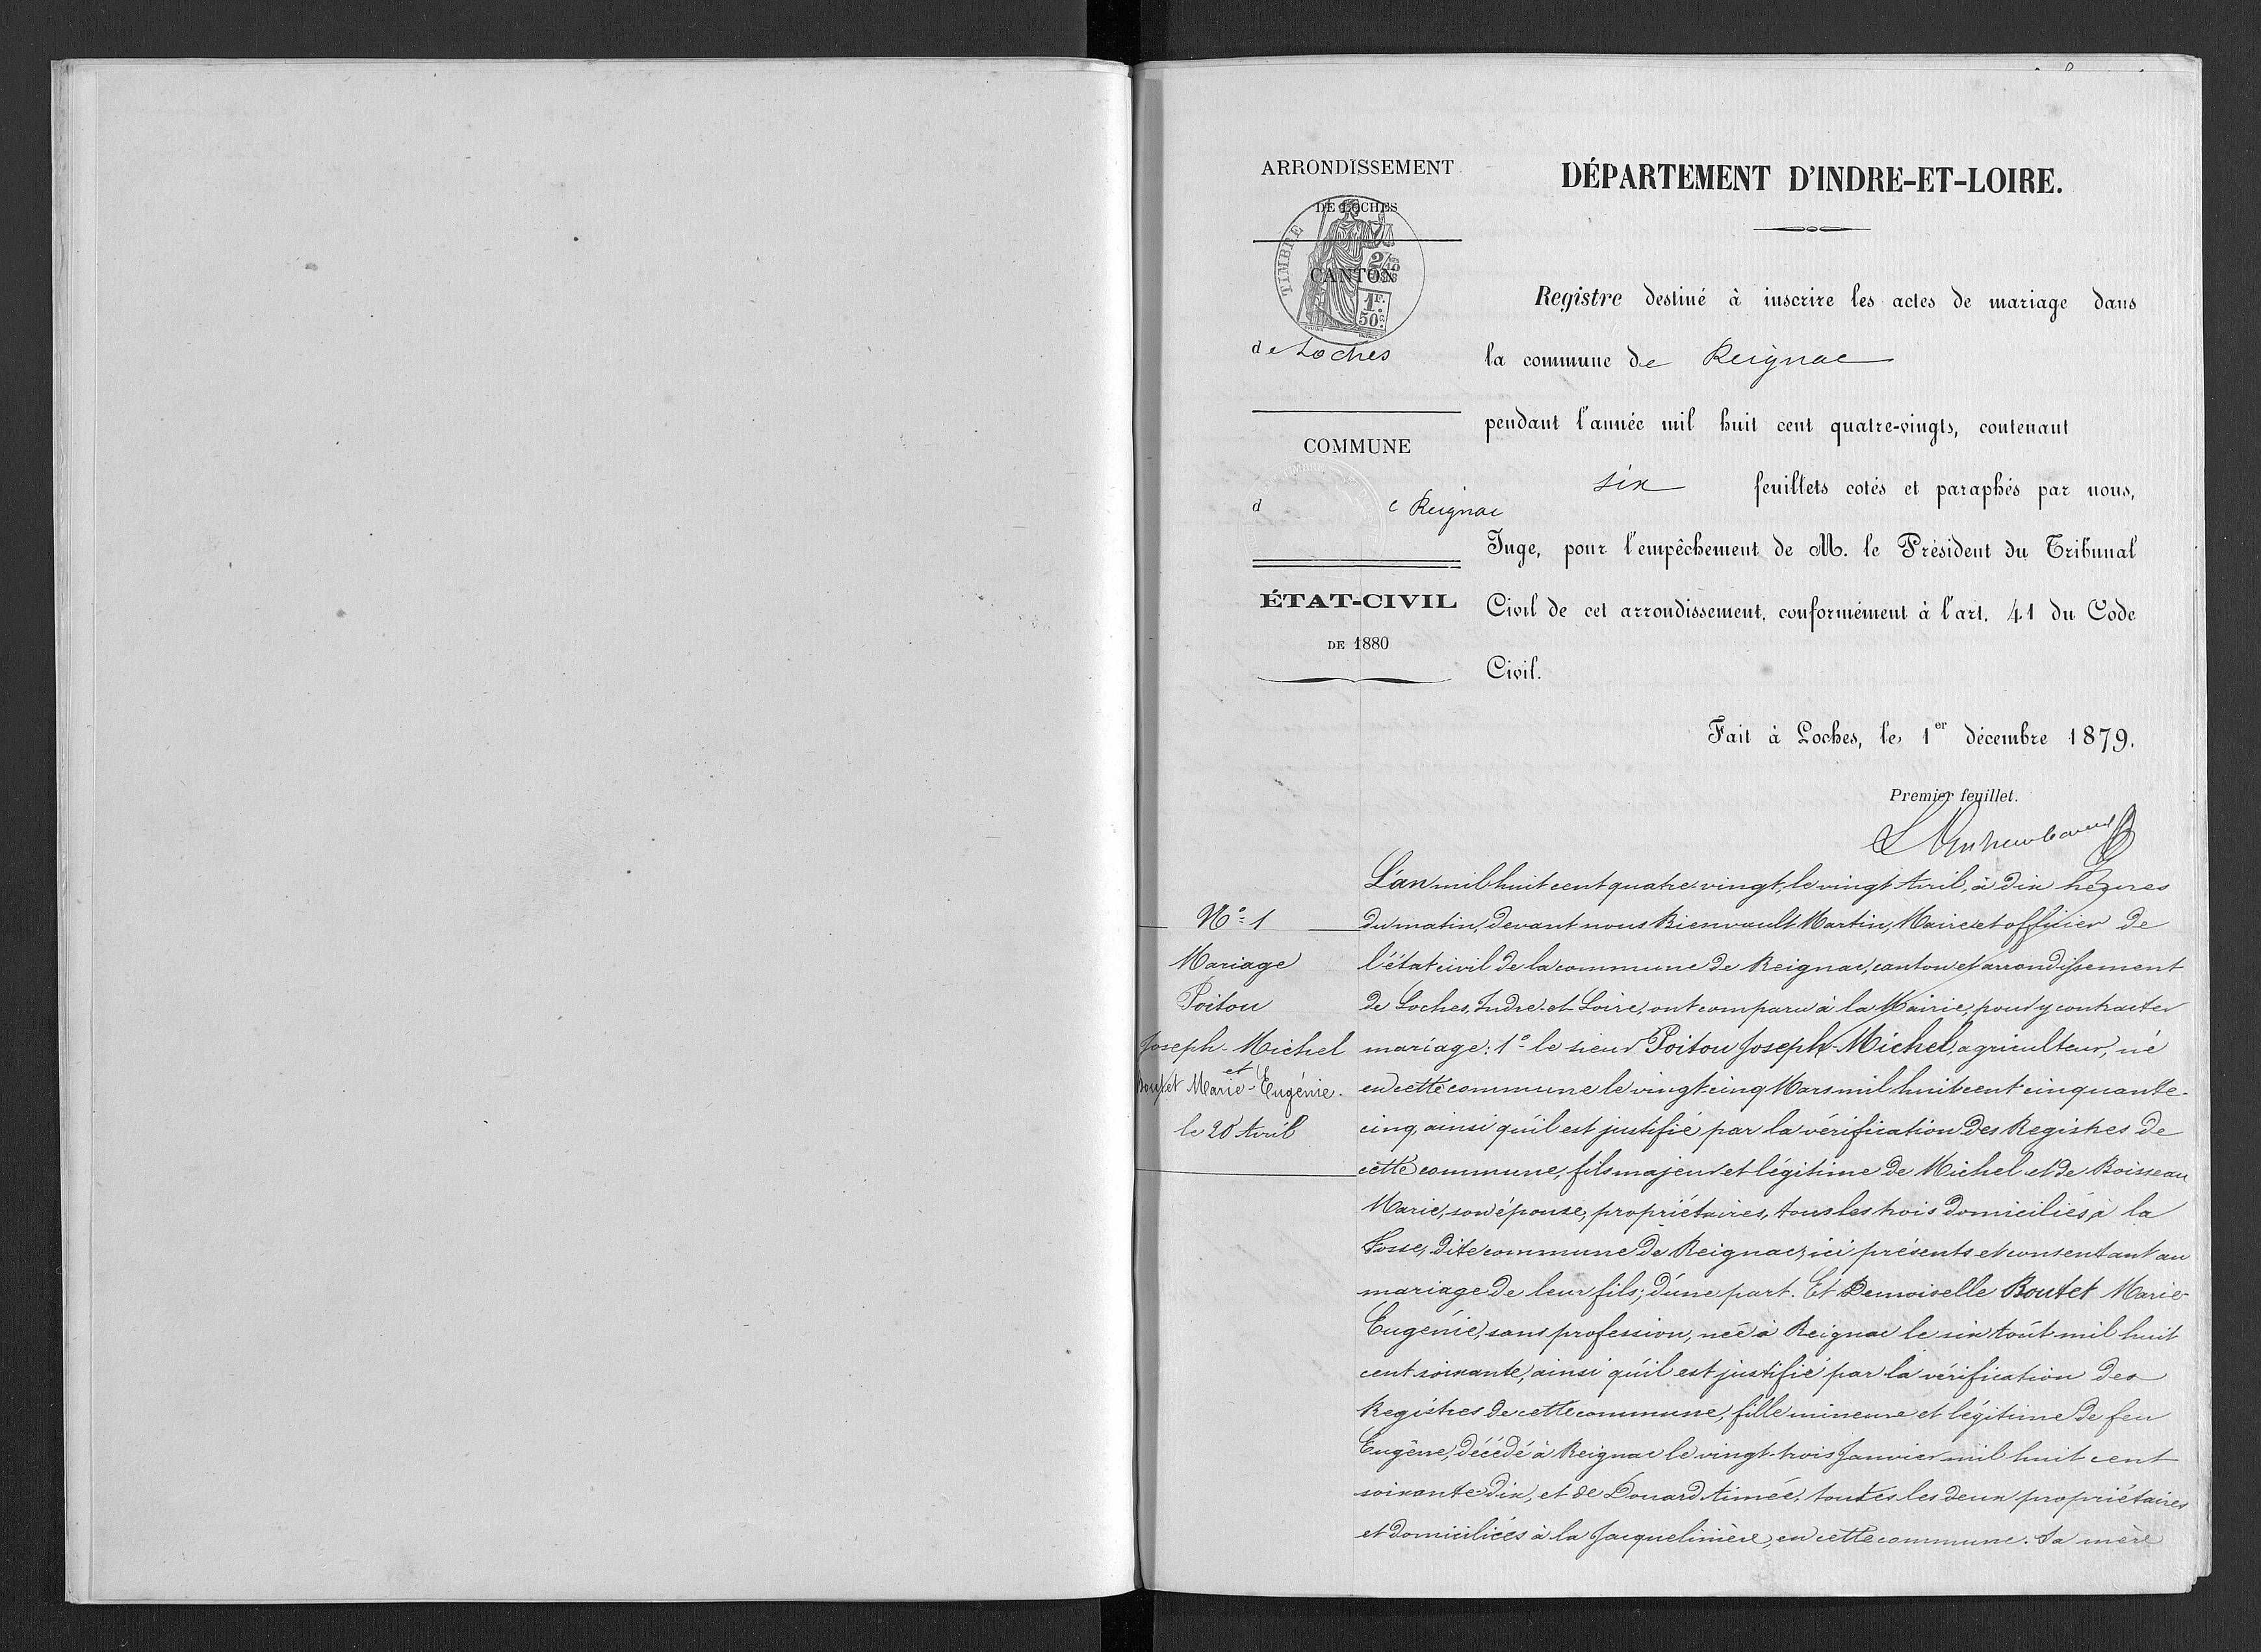 ARRONDISSEMENT
DE LOCHES
TIMBRE
2/10 EN SUS
CANTON
1F.
50c.
de Loches
COMMUNE
de Reignac
ÉTAT-CIVIL
DE 1880
DÉPARTEMENT D'INDRE-ET-LOIRE.
Registre destiné à inscrire les actes de mariage dans
la commune de Reignac
pendant l'année mil huit cent quatre-vingts, contenant
six feuillets cotés et paraphés par nous,
Juge, pour l'empêchement de M. le Président du Tribunal
Civil de cet arrondissement, conformément à l'art. 41 du Code
Civil.
Fait à Loches, le 1er décembre 1879.
Premier feuillet.
N° 1
Mariage
Poitou
Joseph-Michel
et
Boutet Marie-Eugénie.
le 20 Avril
L'an mil huit cent quatre vingt, le vingt Avril, à dix heures
du matin, devant nous Bienvault Martin, Maire et officier de
l'état civil de la commune de Reignac, canton et arrondissement
de Loches, Indre-et-Loire, ont comparu à la Mairie, pour y contracter
mariage: 1° le sieur Poitou Joseph-Michel, agriculteur, né
en cette commune le vingt-cinq Mars mil huit cent cinquante-
cinq, ainsi qu'il est justifié par la vérification des Registres de
cette commune, fils majeur et légitime de Michel et de Boisseau
Marie, son épouse, propriétaires, tous les trois domiciliés à la
Fosse, dite commune de Reignac, ici présents et consentant au
mariage de leur fils; d'une part. Et Demoiselle Boutet Marie-
Eugénie, sans profession, née à Reignac le six Août mil huit
cent soixante, ainsi qu'il est justifié par la vérification des
Registres de cette commune, fille mineure et légitime de feu
Eugène, décédé à Reignac le vingt-trois Janvier mil huit cent
soixante dix, et de Douard Aimée, toutes les deux propriétaires
et domiciliées à la Jacquelinière, en cette commune. Sa mère